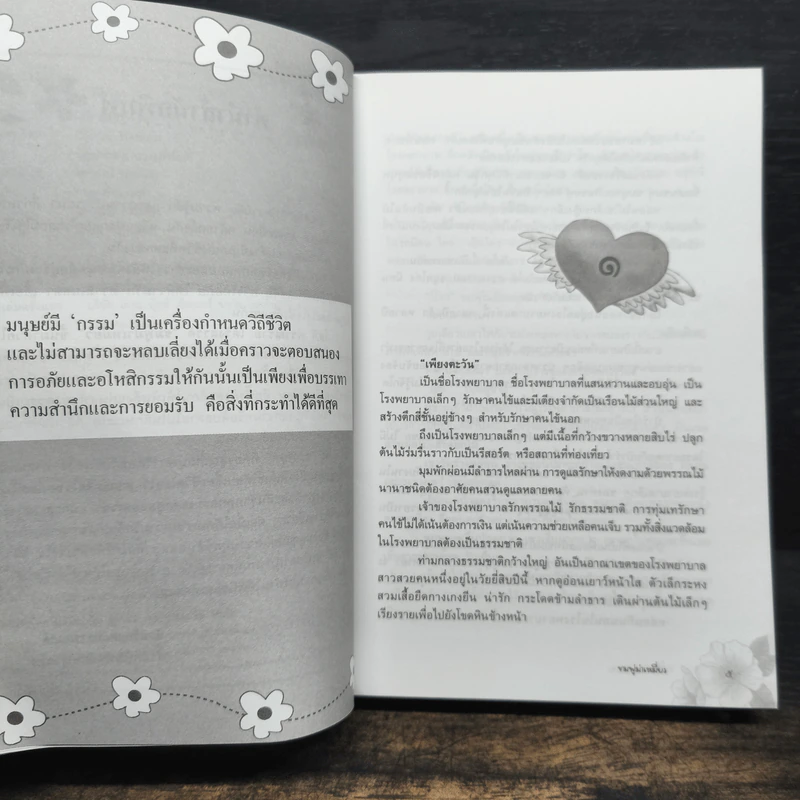 มนุษย์มี ‘กรรม’ เป็นเครื่องกำหนดวิถีชีวิต
และไม่สามารถจะหลบเลี่ยงได้เมื่อคราวจะตอบสนอง
การอภัยและอโหสิกรรมให้กันนั้นเป็นเพียงเพื่อบรรเทา
ความสำนึกและการยอมรับ คือสิ่งที่กระทำได้ดีที่สุด
๑
“เพียงตะวัน”
เป็นชื่อโรงพยาบาล ชื่อโรงพยาบาลที่แสนหวานและอบอุ่น เป็น
โรงพยาบาลเล็กๆ รักษาคนไข้และมีเตียงจำกัดเป็นเรือนไม้ส่วนใหญ่ และ
สร้างตึกสี่ชั้นอยู่ข้างๆ สำหรับรักษาคนไข้นอก
ถึงเป็นโรงพยาบาลเล็กๆ แต่มีเนื้อที่กว้างขวางหลายสิบไร่ ปลูก
ต้นไม้ร่มรื่นราวกับเป็นรีสอร์ต หรือสถานที่ท่องเที่ยว
มุมพักผ่อนมีลำธารไหลผ่าน การดูแลรักษาให้งดงามด้วยพรรณไม้
นานาชนิดต้องอาศัยคนสวนดูแลหลายคน
เจ้าของโรงพยาบาลรักพรรณไม้ รักธรรมชาติ การทุ่มเทรักษา
คนไข้ไม่ได้เน้นต้องการเงิน แต่เน้นความช่วยเหลือคนเจ็บ รวมทั้งสิ่งแวดล้อม
ในโรงพยาบาลต้องเป็นธรรมชาติ
ท่ามกลางธรรมชาติกว้างใหญ่ อันเป็นอาณาเขตของโรงพยาบาล
สาวสวยคนหนึ่งอยู่ในวัยยี่สิบปีนี้ หากดูอ่อนเยาว์หน้าใส ตัวเล็กระหง
สวมเสื้อยืดกางเกงยีน น่ารัก กระโดดข้ามลำธาร เดินผ่านต้นไม้เล็กๆ
เรียงรายเพื่อไปยังโขดหินข้างหน้า
ชมพูม่าเหมี่ยว